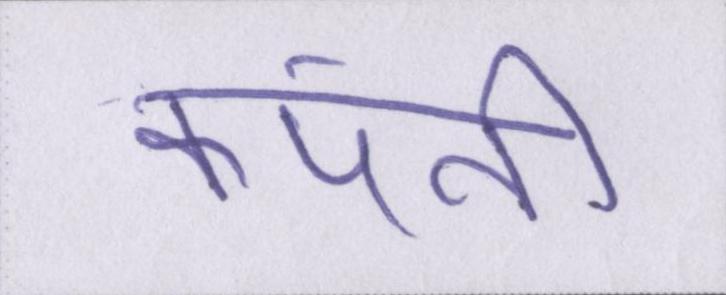 कंपनी